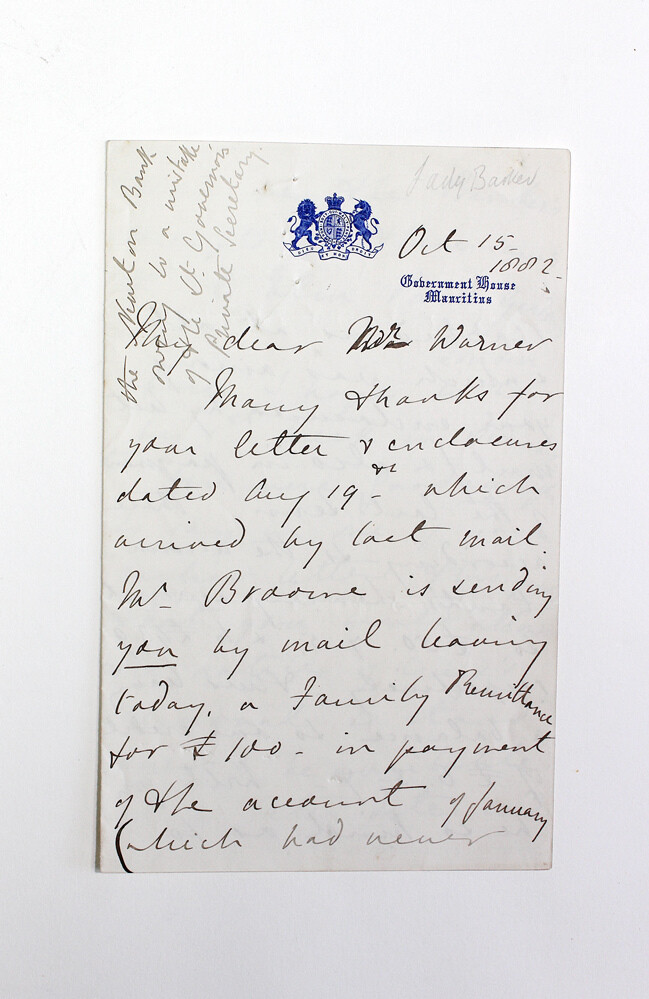 Lady Barker
Oct 15-
1882-
Government House
Mauritius
My dear Mr Warner
Many thanks for
your letter & enclosures
dated Aug 19th which
arrived by last mail.
Mr Broome is sending
you by mail leaving
today, a Family Remittance
for £100- in payment
of the account of January
(which had never
the Bank
owing to a mistake
of the Lt Governor's
Private Secretary.